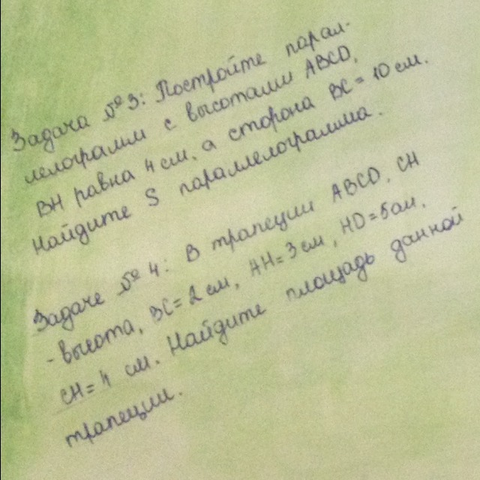 Задача №3: Постройте парал-
лелограмм с высотами ABCD,
BH равна 4 см. а сторона BC = 10 см.
Найдите S параллелограмма.
Задаче №4: В трапеции ABCD, CH
- высота, BC = 2 см, AH = 3 см, HD = 5 см,
CH = 4 см. Найдите площадь данной
трапеции.